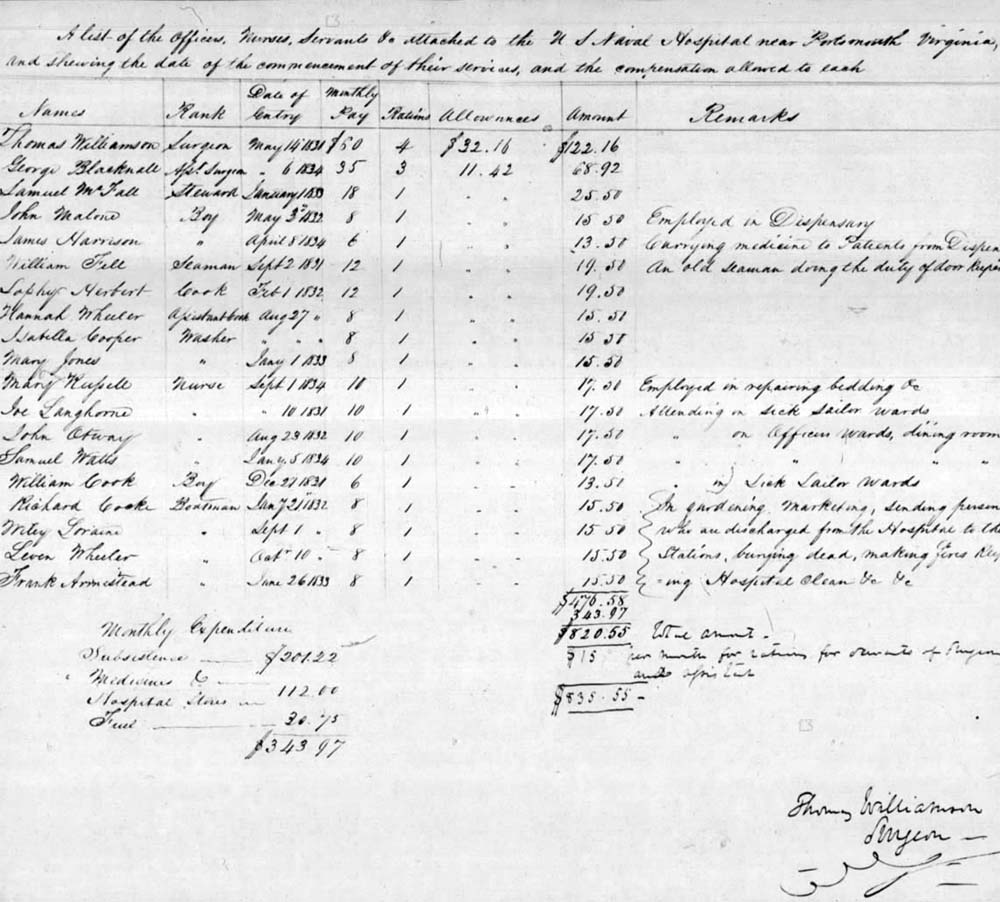 A list of the Officers, Nurses, Servants &c attached to the U S Naval Hospital near Portsmouth Virginia,
and shewing the date of the commencement of their services, and the compensation allowed to each
Names Rank Date of Entry Monthly Pay Rations Allowances Amount Remarks
Thomas Williamson Surgeon May 14 1831 $60 4 $32.16 $122.16
George Blacknall Asst Surgeon " 6 1834 35 3 11.42 68.92
Samuel McFall Steward January 1 1833 18 1 " " 25.50
John Malone Boy May 3d 1832 8 1 " " 15.50 Employed in Dispensary
James Harrison " April 8 1834 6 1 " " 13.50 Carrying medicine to Patients from Dispen
William Fell Seaman Sept 2 1831 12 1 " " 19.50 An old seaman doing the duty of door
Sophy Herbert Cook Feb 1 1832 12 1 " " 19.50
Hannah Wheeler Assistant Cook Aug 27 " 8 1 " " 15.50
Isabella Cooper Washer " " " 8 1 " " 15.50
Mary Jones " Jany 1 1833 8 1 " " 15.50
Mary Russell Nurse Sept 1 1834 10 1 " " 17.50 Employed in repairing bedding &c
Ive Langhorne " " 10 1831 10 1 " " 17.50 Attending in Sick Sailor wards
John Otway " Aug 23 1832 10 1 " " 17.50 " on Officers wards, dining room
Samuel Watts " Jany 5 1834 10 1 " " 17.50 " " " "
William Cook Boy Dec 21 1831 6 1 " " 13.50 " in Sick Sailor wards
Richard Cooke Boatman Jany 21 1832 8 1 " " 15.50 In gardening, marketing, sending person
Wiley Loraine " Sept 1 " 8 1 " " 15.50 who are discharged from the Hospital to
Leven Wheeler " Oct 10 " 8 1 " " 15.50 Stations, burying dead, making fires Keep
Frank Armistead " June 26 1833 8 1 " " 15.50 =ing Hospital Clean &c &c
$476.58
343.97
Monthly Expenditure
$820.55 Total amount
Subsistence $201.22
$15 per month for rations for servants of Surgeon
and assistant
Medicines &
Hospital Stores 112.00
$835.55
Fuel 30.75
$343 97
Thomas Williamson
Surgeon